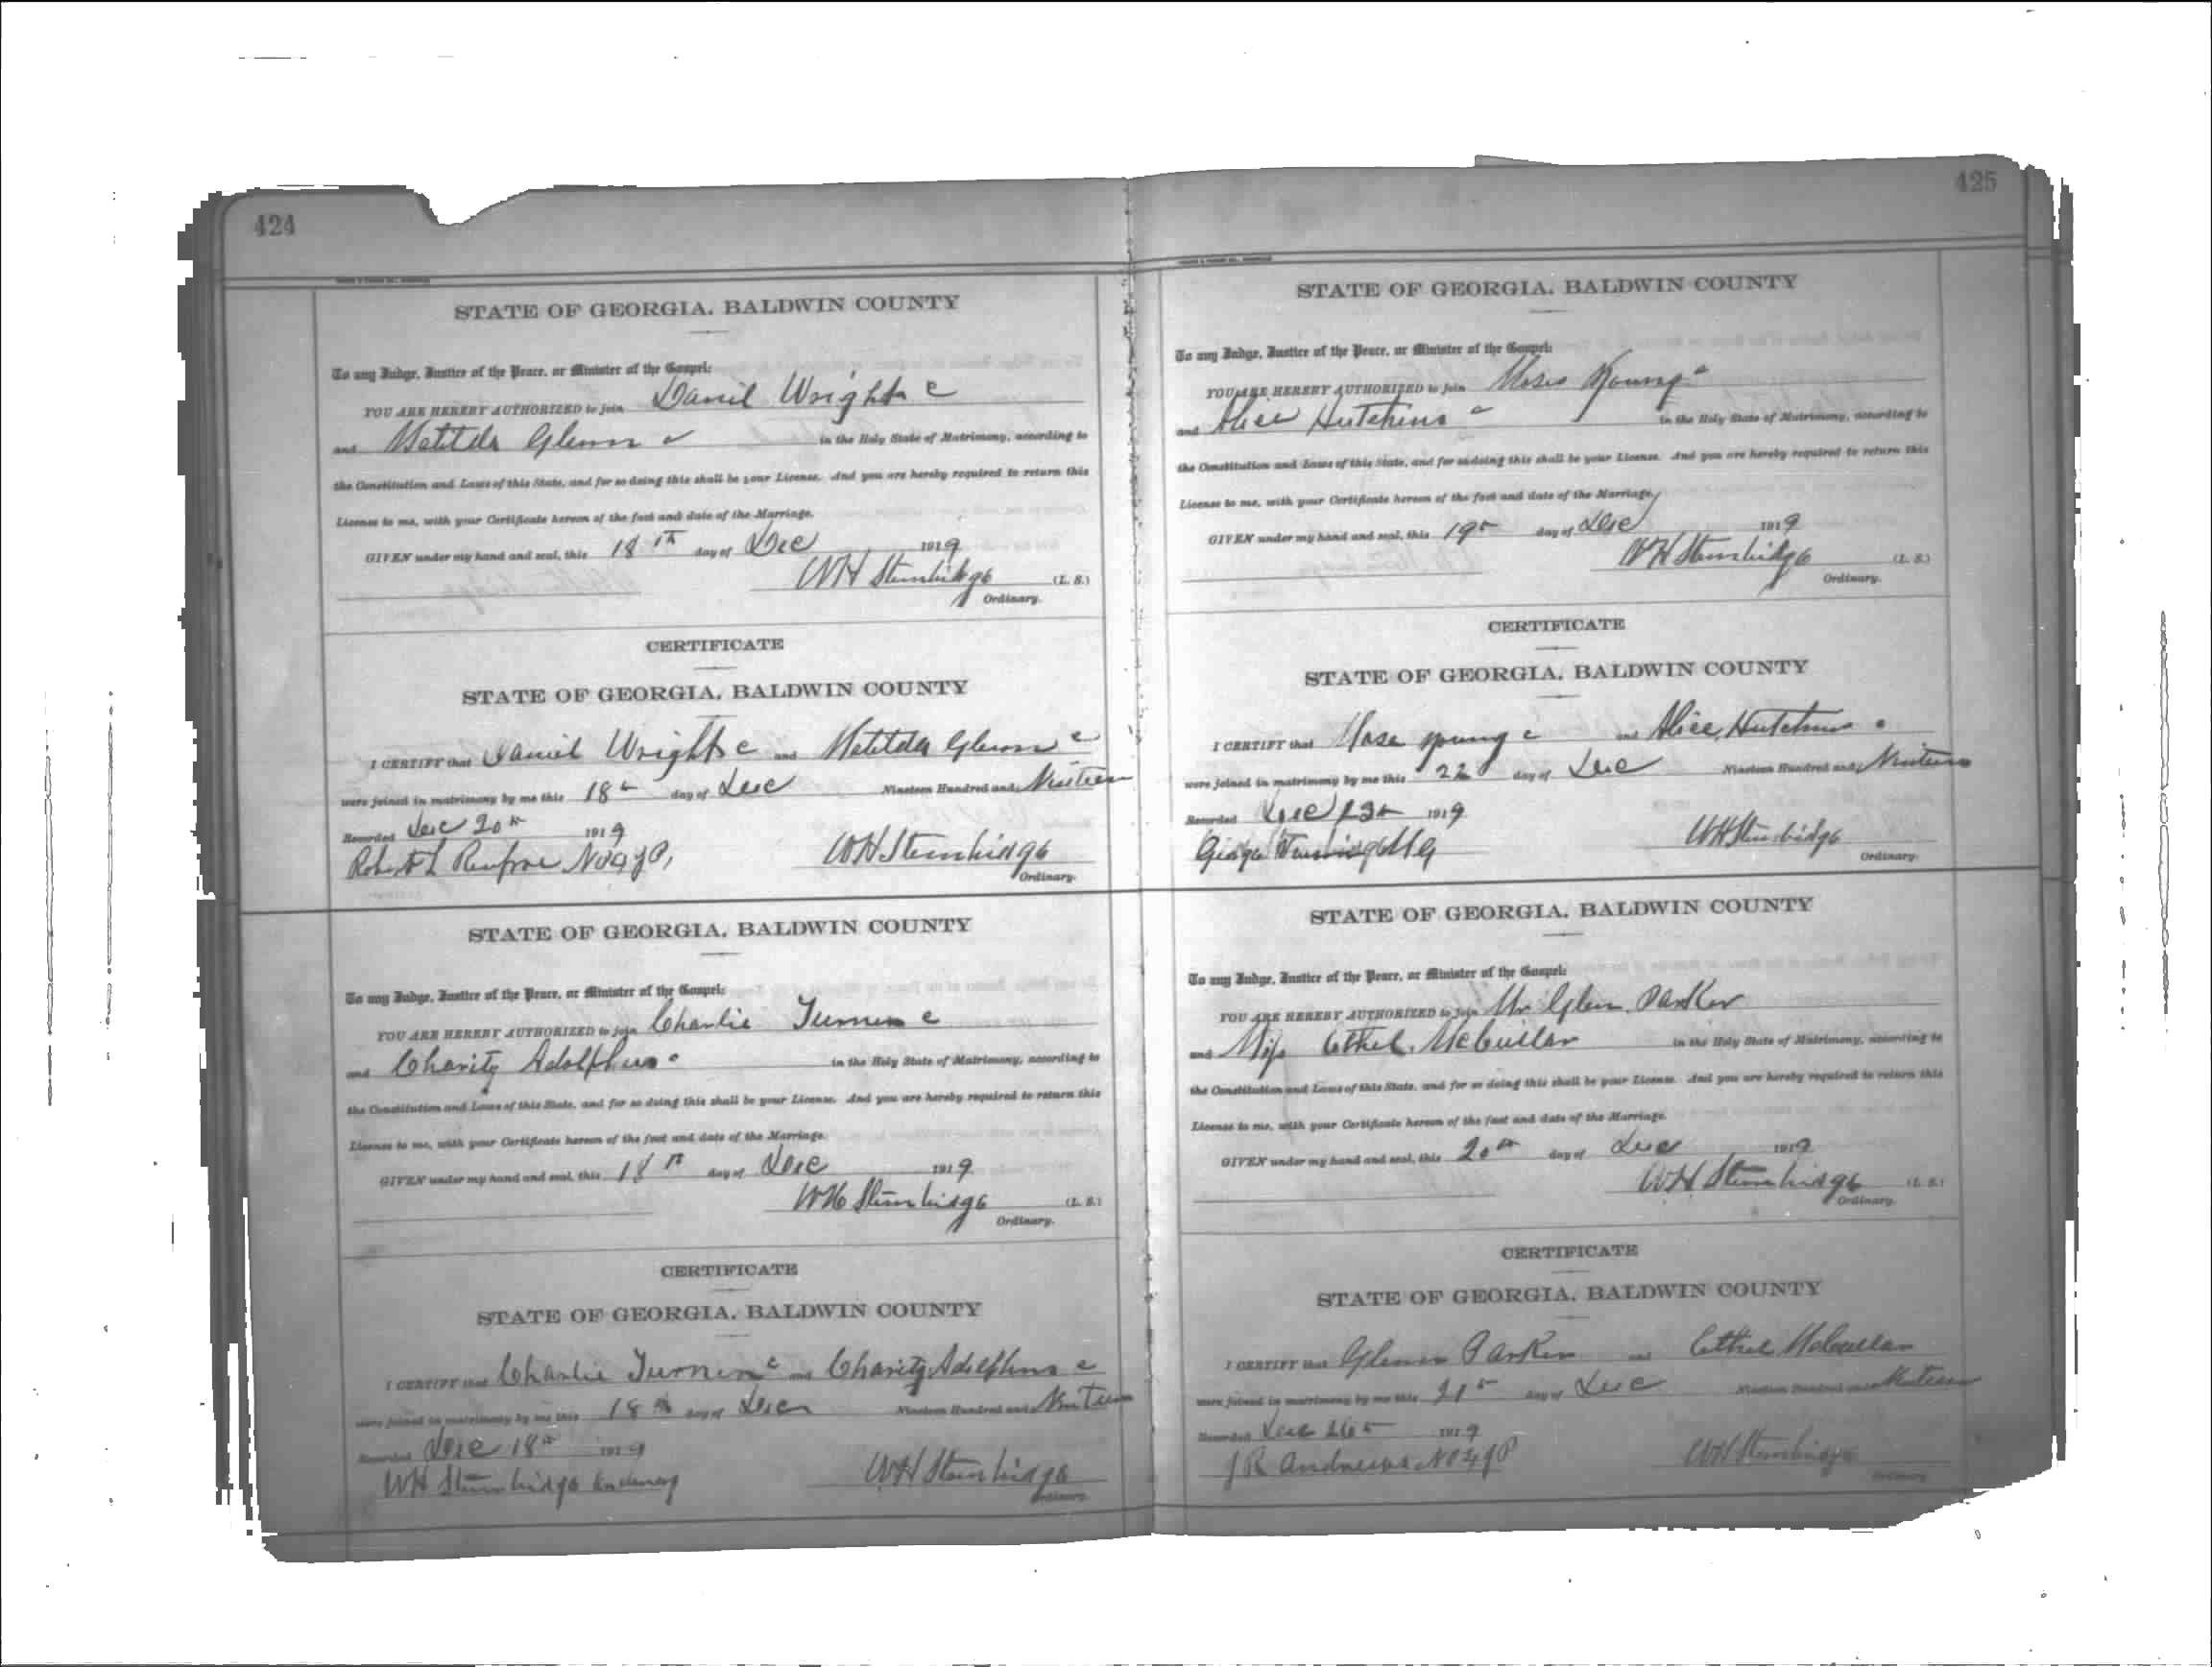 424
STATE OF GEORGIA, BALDWIN COUNTY
To any Judge, Justice of the Peace, or Minister of the Gospel:
YOU ARE HEREBY AUTHORIZED to join Daniel Wright c
and Matilda Glenn c in the Holy State of Matrimony, according to
the Constitution and Laws of this State, and for so doing this shall be your License. And you are hereby required to return this
License to me, with your Certificate hereon of the fact and date of the Marriage.
GIVEN under my hand and seal, this 18th day of Dec 1919
WH Stembridge (L. S.)
Ordinary.
CERTIFICATE
STATE OF GEORGIA, BALDWIN COUNTY
I CERTIFY that Daniel Wright c and Matilda Glenn c
were joined in matrimony by me this 18th day of Dec Nineteen Hundred and Nineteen
Recorded Dec 20th 1919
Robert L Renfroe WH Stembridge
Ordinary.
STATE OF GEORGIA, BALDWIN COUNTY
To any Judge, Justice of the Peace, or Minister of the Gospel:
YOU ARE HEREBY AUTHORIZED to join Charlie Turner c
and Charity Adolphus c in the Holy State of Matrimony, according to
the Constitution and Laws of this State, and for so doing this shall be your License. And you are hereby required to return this
License to me, with your Certificate hereon of the fact and date of the Marriage.
GIVEN under my hand and seal, this 18th day of Dec 1919
WH Stembridge (L. S.)
Ordinary.
CERTIFICATE
STATE OF GEORGIA, BALDWIN COUNTY
I CERTIFY that Charlie Turner c and Charity Adolphus c
were joined in matrimony by me this 18th day of Dec Nineteen Hundred and Nineteen
Recorded Dec 18th 1919
WH Stembridge Ordinary WH Stembridge
Ordinary.
425
STATE OF GEORGIA, BALDWIN COUNTY
To any Judge, Justice of the Peace, or Minister of the Gospel:
YOU ARE HEREBY AUTHORIZED to join Moses Young c
and Alice Hutchins c in the Holy State of Matrimony, according to
the Constitution and Laws of this State, and for so doing this shall be your License. And you are hereby required to return this
License to me, with your Certificate hereon of the fact and date of the Marriage.
GIVEN under my hand and seal, this 19th day of Dec 1919
WH Stembridge (L. S.)
Ordinary.
CERTIFICATE
STATE OF GEORGIA, BALDWIN COUNTY
I CERTIFY that Mose Young c and Alice Hutchins c
were joined in matrimony by me this 22 day of Dec Nineteen Hundred and Nineteen
Recorded Dec 1919
George MG WH Stembridge
Ordinary.
STATE OF GEORGIA, BALDWIN COUNTY
To any Judge, Justice of the Peace, or Minister of the Gospel:
YOU ARE HEREBY AUTHORIZED to join Mr Glen Parker
and Miss Ethel McCullar in the Holy State of Matrimony, according to
the Constitution and Laws of this State, and for so doing this shall be your License. And you are hereby required to return this
License to me, with your Certificate hereon of the fact and date of the Marriage.
GIVEN under my hand and seal, this 20th day of Dec 1919
WH Stembridge (L. S.)
Ordinary.
CERTIFICATE
STATE OF GEORGIA, BALDWIN COUNTY
I CERTIFY that Glenn Parker and Ethel McCullar
were joined in matrimony by me this 21st day of Dec Nineteen Hundred and Nineteen
Recorded Dec 26th 1919
J R Andrews WH Stembridge
Ordinary.